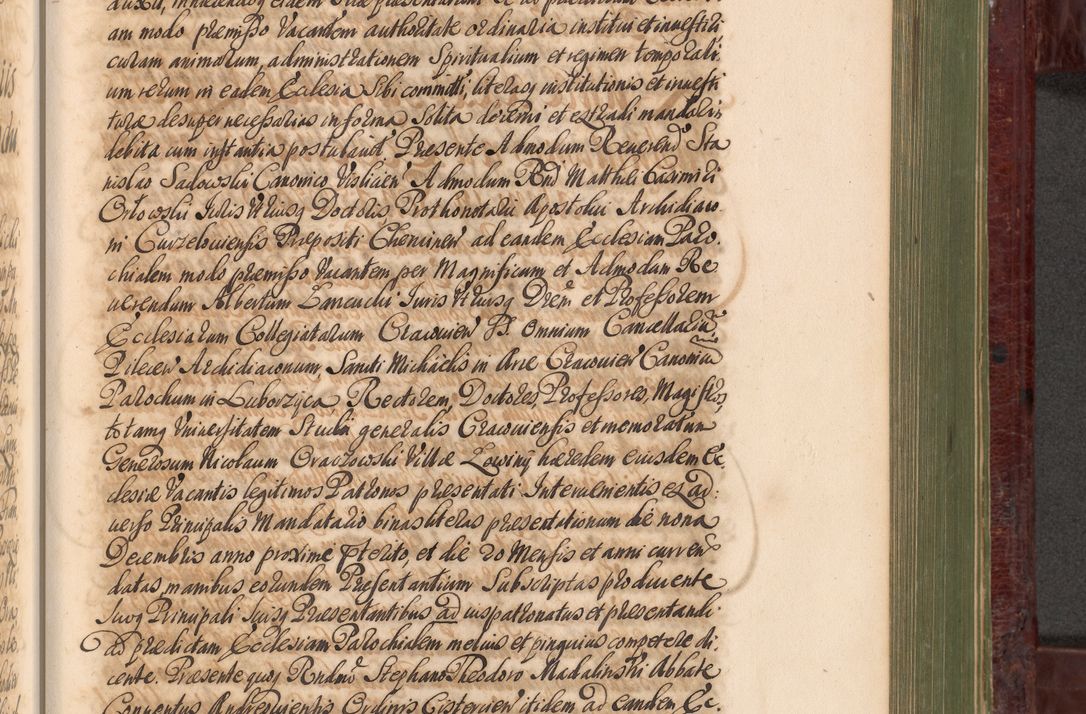 am modo præmisso Vacantem authoritate ordinaria institui et investiri
curam animarum, administrationem Spiritualium et regimen temporali-
um rerum in eadem Ecclesia Sibi committi, literasq institutionis et investi
turæ desuper necessarias in forma Solita decerni et extradi mandari
debita cum instantia postulavit Præsente Admodum Reverend Sta
nislao Sadowski Canonico Vislicien Admodum Rnd Matthæi Casimiri
Orlowski Juris Utriusq Doctoris, Prothonotarii Apostolici Archidiaco
ni Curzeloviensis Præpositi Checinen ad eandem Ecclesiam Paro-
chialem modo præmisso Vacantem per Magnificum et Admodum Re
verendum Albertum Lancucki Juris Utriusq Drem et Professorem
Ecclesiarum Collegiatarum Cracovien SS Omnium Cancellarium
Pilecen Archidiaconum, Sancti Michaëlis in Arce Cracovien Canonicum
Parochum in Luborzyca Rectorem, Doctores, Professores, Magistros,
totamq Universitatem Studii generalis Cracoviensis et memoratum
Generosum Nicolaum Oraczowski Villæ Lowiny hæredem eiusdem Ec
clesiæ Vacantis legitimos Patronos præsentati Intervenientis ex ad-
verso Principalis Mandatario binas literas præsentationum die nona
Decembris anno proxime præterito, et die 20 Mensis et anni curren
datas, manibus eorundem Præsentantium Subscriptas producente
suoq Principali suisq Præsentantibus ad iuspatronatus et præsentandi
ad prædictam Ecclesiam Parochialem melius et pinguius competere di-
cente. Præsente quoq Rndmo Stephano Theodoro Madalinski Abbate
Conventus Andreoviensis Ordinis Cistercien itidem ad eandem Ec-